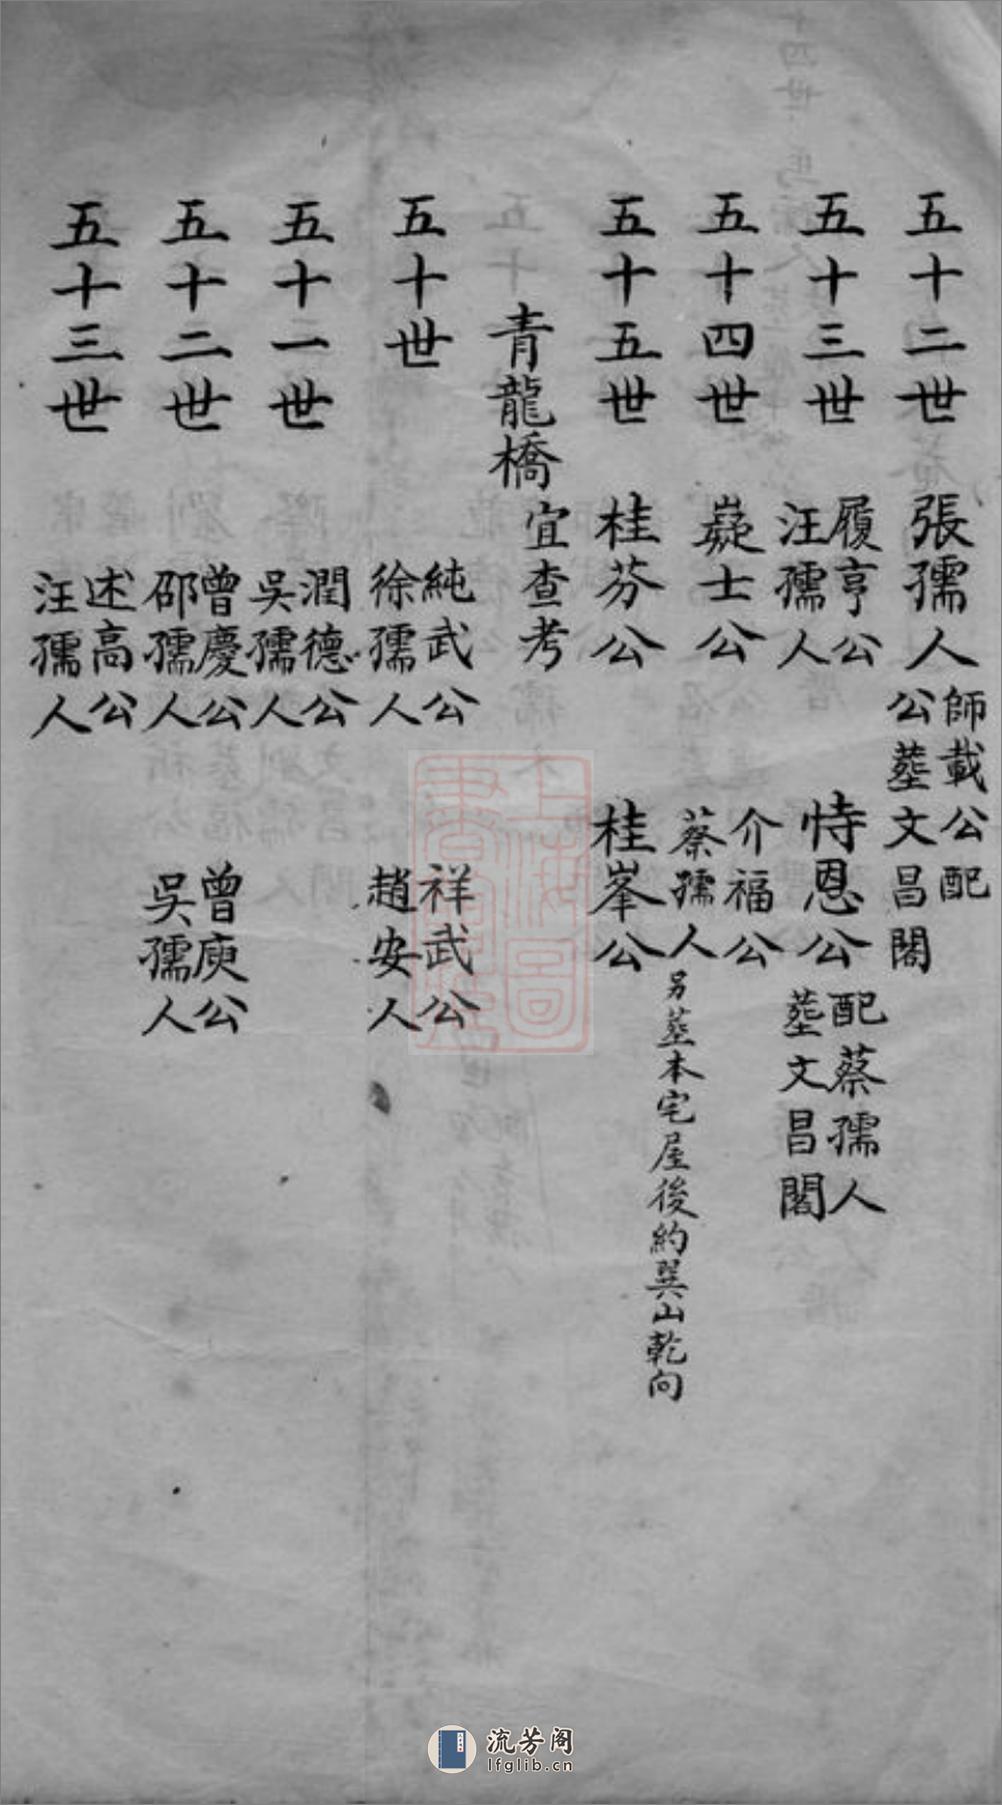 五十二世 張孺人 師載公配
公塟文昌閣
五十三世 履亨公 恃恩公 配蔡孺人
汪孺人 塟文昌閣
五十四世 嶷士公 介福公
蔡孺人 另塟本宅屋後約巽山乾向
五十五世 桂芬公 桂峯公
青龍橋 宜查考
五十世 純武公 祥武公
徐孺人 趙安人
五十一世 潤德公
吳孺人
五十二世 曾慶公 曾庾公
邵孺人 吳孺人
五十三世 述高公
汪孺人
流芳阁
lfglib.cn